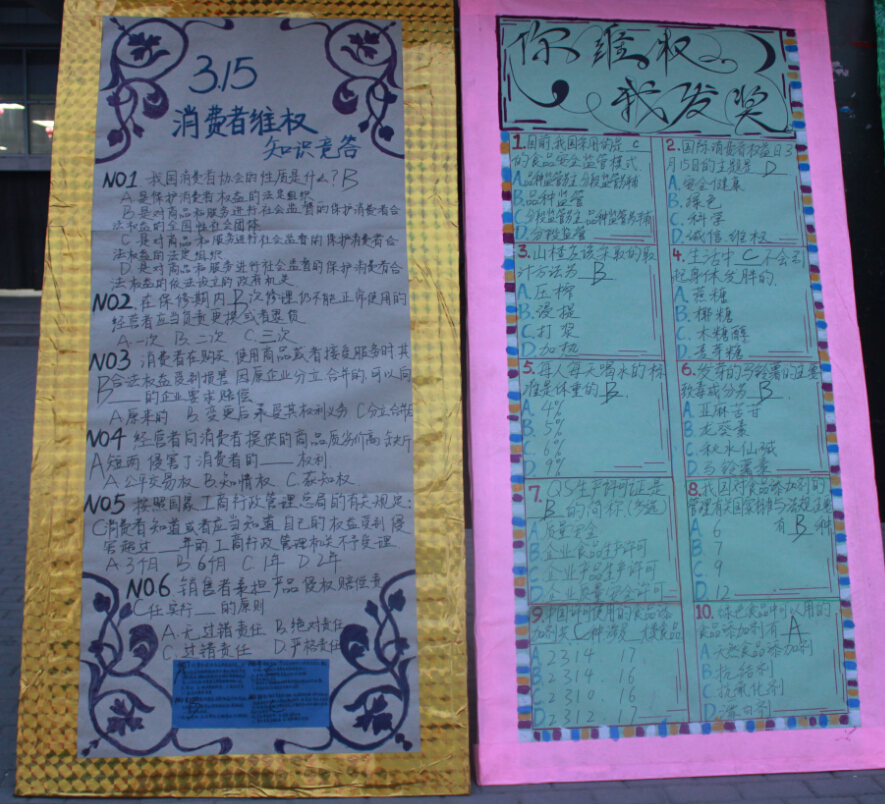 3.15
消费者维权
知识竞答
NO1 我国消费者协会的性质是什么？B
A 是保护消费者权益的法定组织
B 是对商品和服务进行社会监督的保护消费者合
法权益的全国性社会团体
C 是对商品和服务进行社会监督的保护消费者合
法权益的法定组织
D 是对商品和服务进行社会监督的保护消费者合
法权益的依法设立的政府机关
NO2 在保修期内B次修理仍不能正常使用的
经营者应当负责更换或者
A 一次 B. 二次 C. 三次
NO3 消费者在购买 使用商品或者接受服务时其
B合法权益受到损害 因原企业分立合并的 可以向
___的企业要求赔偿
A 原来的 B 变更后承受其权利义务 C 分立合并
NO4 经营者向消费者提供的商品质劣价高 缺斤
A 短两 侵害了消费者的____权利
A 公平交易权 B. 知情权 C 获知权
NO5 按照国家工商行政管理总局的有关规定：
C 消费者知道或者应当知道自己的权益受到侵
害超过__年的工商行政管理机关不予受理
A 3个月 B 6个月 C 1年 D 2年
NO6 销售者承担产品侵权赔偿责
C 任实行__的原则
A. 无过错责任 B 绝对责任
C. 过错责任 D. 严格责任
你维权
我发奖
1. 目前我国采用的是 C
的食品安全监管模式
A. 品种监管为主 分段监管为辅
B. 品种监管
C. 分段监管为主 品种监管为辅
D. 分段监管
2. 国际消费者权益日3
月15日的主题是 D
A. 安全健康
B. 绿色
C. 科学
D. 诚信 维权
3. 山楂应该采取的取
汁方法为 B
A. 压榨
B. 浸提
C. 打浆
D. 加机
4. 生活中 C 不会引
起身体发胖的
A. 蔗糖
B. 椰糖
C. 木糖醇
D. 麦芽糖
5. 每人每天喝水的标
准是体重的 B
A. 4%
B. 5%
C. 6%
D. 9%
6. 发芽的马铃薯的主要
致毒成分为 B
A. 亚麻苦苷
B. 龙葵素
C. 秋水仙碱
D. 马铃薯素
7. QS生产许可证是
B 的简称（多选）
A 质量安全
B 企业食品生产许可
C 企业产品生产许可
D 企业质量安全许可
8. 我国对食品添加剂的
管理有关国家标准与法规主要
有 B 种
A 6
B 7
C 9
D 12
9. 中国许可使用的食品添
加剂共 C 种 大类食品
A 2314. 17.
B 2314. 16
C 2310. 16
D 2312. 17
10. 绿色食品中可以用的
食品添加剂有 A
A 天然食品添加剂
B 抗结剂
C 抗氧化剂
D 漂白剂